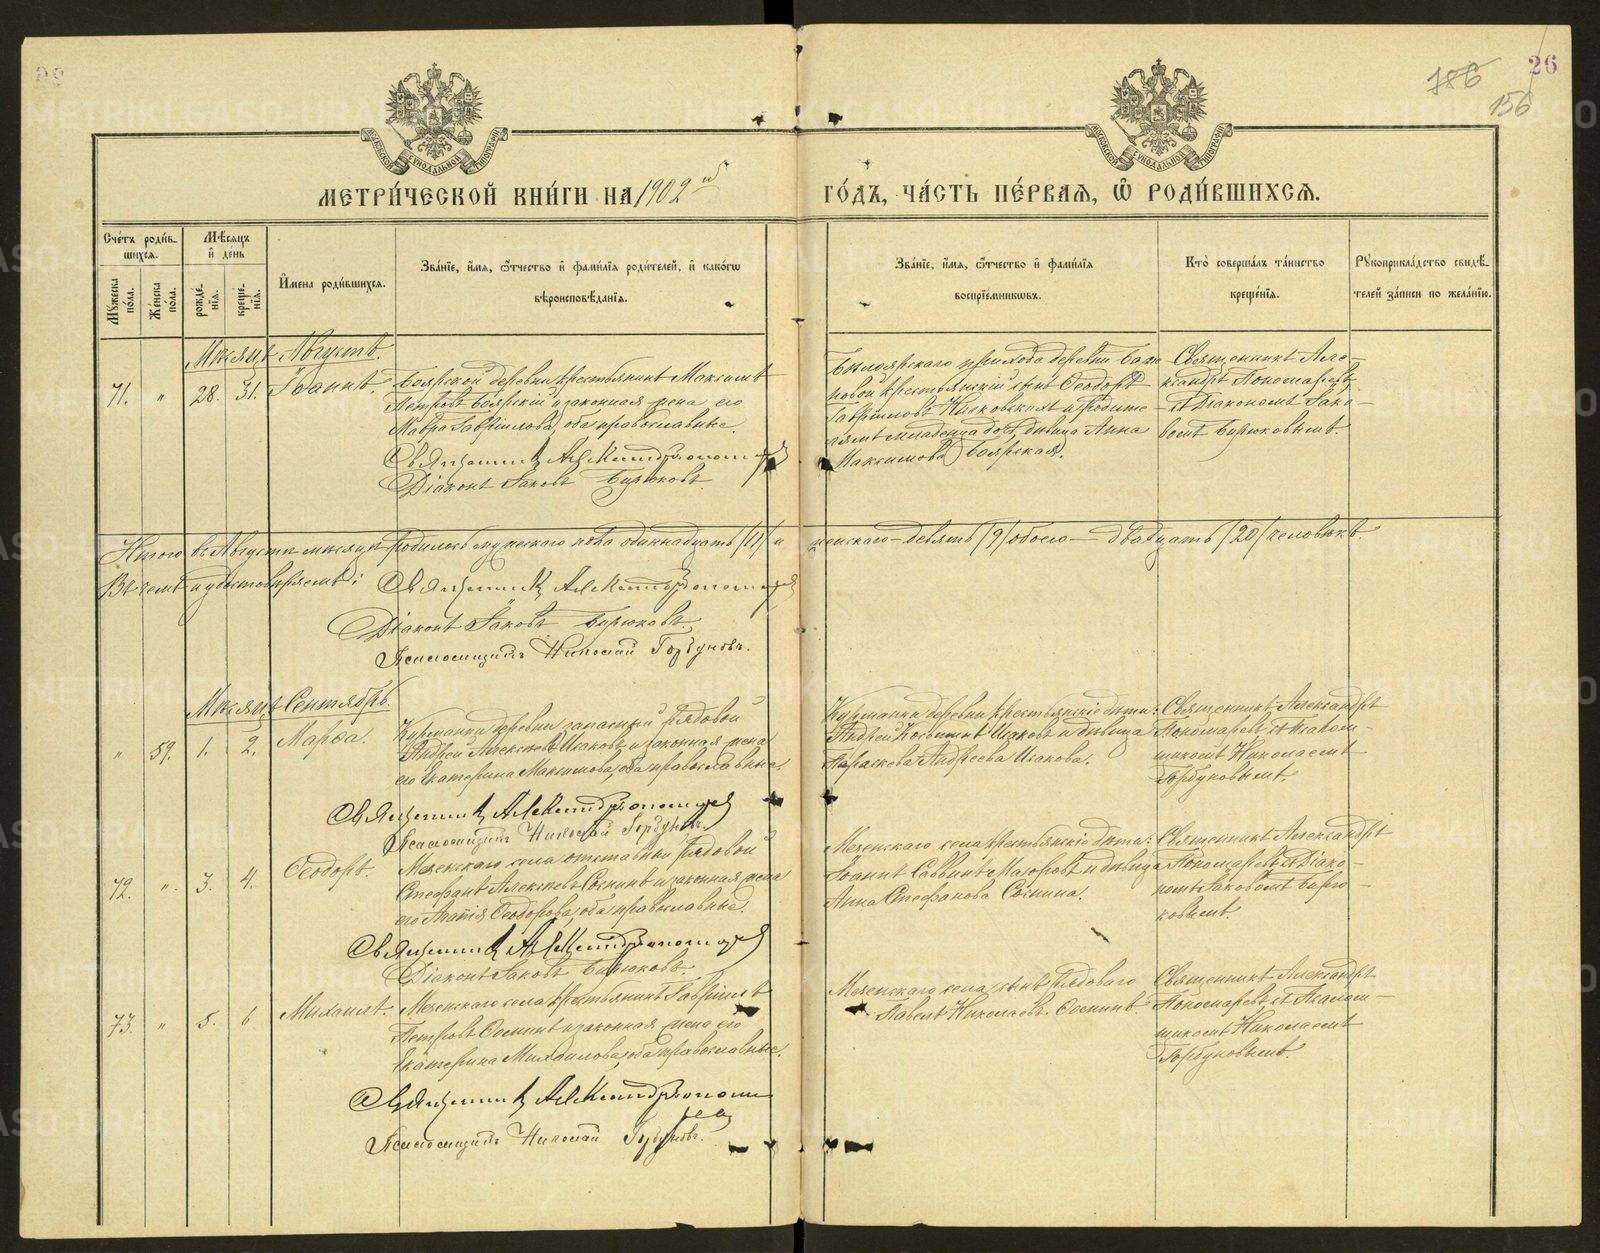 26
186
156
МЕТРИ́ЧЕСКОЙ КНИ́ГИ НА 1902 й ГО́ДЪ, ЧА́СТЬ ПЕ́РВАЯ, Ѡ РОДИ́ВШИХСЯ.
Сче́тъ роди́в-
шихся.
Мꙋ́жеска по́ла.
Же́нска по́ла.
Мѣ́сяцъ и де́нь
рожде́нїя.
креще́нїя.
И҆мена роди́вшихся.
Зва́нїе, и҆́мя, ѻ҆́тчество и҆ фами́лїя роди́телей, и҆ како́гѡ
вѣроисповѣ́данїя.
Зва́нїе, и҆́мя, ѻ҆́тчество и҆ фами́лїя
воспрїе́мникѡвъ.
Кто̀ соверша́лъ та́инство
креще́нїя.
Рꙋкоприкла́дство свидѣ́-
телей за́писи по жела́нїю.
Мѣсяцъ Августъ.
71. " 28. 31. Іоаннъ.
Боярской деревни крестьянинъ Максимъ
Петровъ Боярскій и законная жена его
Мавра Гавріилова, оба православные.
Священникъ Александръ Пономаревъ
Діаконъ Іаковъ Бирюковъ.
Бѣлоярскаго прихода деревни
крестьянскій сынъ Ѳеодоръ
Гавріиловъ и родите-
лямъ младенца дочь, дѣвица Анна
Максимова Боярская.
Священникъ Але-
ксандръ Пономаревъ
съ Діакономъ Іако-
вомъ Бирюковымъ.
Итого въ Августѣ мѣсяцѣ родилось мужескаго пола одиннадцать /11/ и женскаго – девять /9/ обоего – двадцать /20/ человѣкъ.
Въ чемъ и удостовѣряемъ: Священникъ Александръ Пономаревъ
Діаконъ Іаковъ Бирюковъ
Псаломщикъ Николай Горбуновъ.
Мѣсяцъ Сентябрь.
" 59. 1. 2. Марѳа.
Курманки деревни запасный рядовой
Андрей Алексѣевъ Исаковъ и законная жена
его Екатерина Максимова, оба православные.
Священникъ Александръ Пономаревъ
Псаломщикъ Николай Горбуновъ.
Курманки деревни крестьянскіе дѣти:
Андрей Косьминъ Исаковъ и дѣвица
Параскева Андреева Исакова.
Священникъ Александръ
Пономаревъ съ Псалом-
щикомъ Николаемъ
Горбуновымъ.
72. " 3. 4. Ѳеодоръ.
Мезенскаго села отставный рядовой
Стефанъ Алексѣевъ Соснинъ и законная жена
его Агапія Ѳеодорова, оба православные.
Священникъ Александръ Пономаревъ
Діаконъ Іаковъ Бирюковъ.
Мезенскаго села крестьянскіе дѣти:
Іоаннъ Саввинъ Маюровъ и дѣвица
Анна Стефанова Соснина.
Священникъ Александръ
Пономаревъ съ Діако-
номъ Іаковомъ Бирю-
ковымъ.
73. " 5. 6 Михаилъ.
Мезенскаго села крестьянинъ Гавріилъ
Петровъ Соснинъ и законная жена его
Екатерина Михаилова, оба православные.
Священникъ Александръ Пономаревъ
Псаломщикъ Николай Горбуновъ.
Мезенскаго села, сынъ рядоваго
Павелъ Николаевъ Соснинъ.
Священникъ Александръ
Пономаревъ съ Псалом-
щикомъ Николаемъ
Горбуновымъ.
METRIKI.GASO-URAL.RU